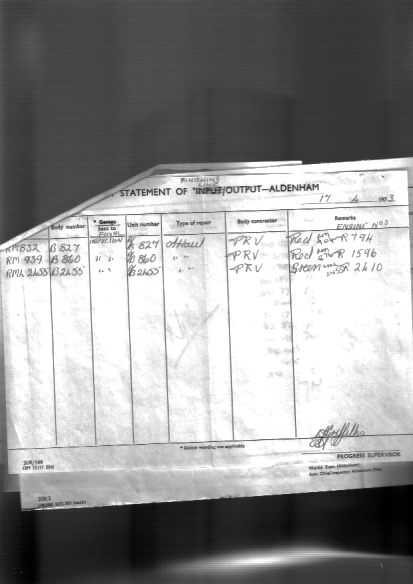 FINISHING
LINE
STATEMENT OF *INPUT/OUTPUT—ALDENHAM
17 4 1973
Body number * Garage Sent to FINAL INSPECTION Unit number Type of repair Body contractor Remarks ENGINE NOS
RM832 B827 B 827 O/Haul PRV Red R 794
RM 939 B 860 " " B 860 " " PRV Red R 1596
RML 2655 B2655 " " B2655 " " PRV Green R 2610
* Delete wording not applicable
PROGRESS SUPERVISOR
Works Supt. (Aldenham)
Asst. Chief Inspector Aldenham
308/349
308/3